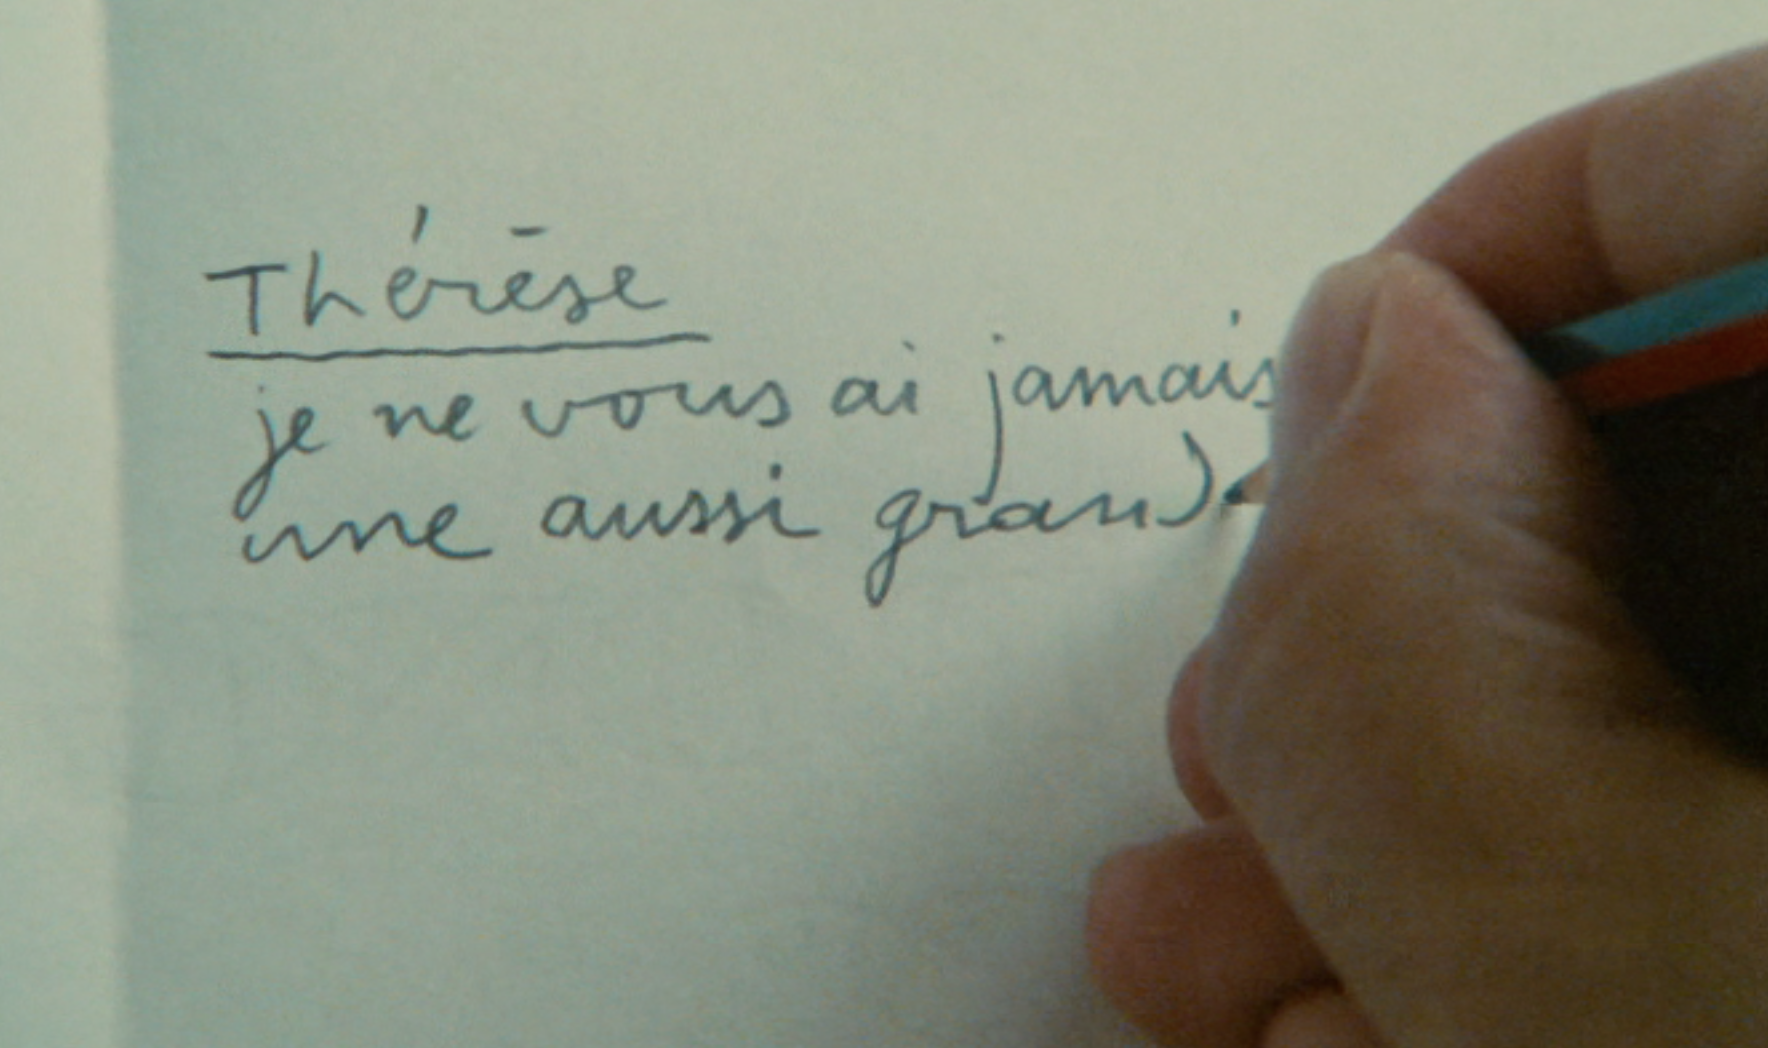 Thérèse
je ne vous ai jamais
une aussi grand